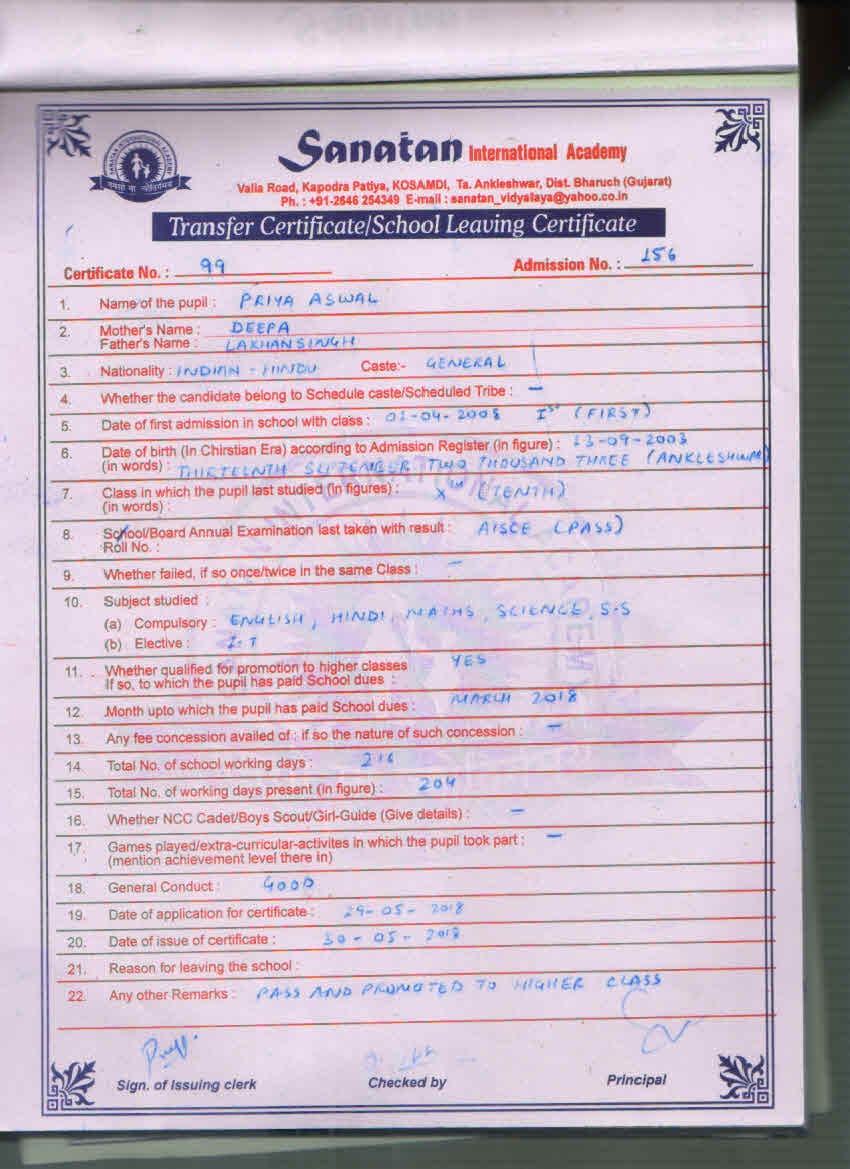 SANATAN INTERNATIONAL ACADEMY
तमसो मा ज्योतिर्गमय
Sanatan International Academy
Valia Road, Kapodra Patiya, KOSAMDI, Ta. Ankleshwar, Dist. Bharuch (Gujarat)
Ph. : +91-2646 254349 E-mail : sanatan_vidyalaya@yahoo.co.in
Transfer Certificate/School Leaving Certificate
Certificate No. : 99 Admission No. : 156
1. Name of the pupil : PRIYA ASWAL
2. Mother's Name : DEEPA
Father's Name : LAKHANSINGH
3. Nationality : INDIAN - HINDU Caste:- GENERAL
4. Whether the candidate belong to Schedule caste/Scheduled Tribe : –
5. Date of first admission in school with class : 01-04-2008 Ist (FIRST)
6. Date of birth (In Chirstian Era) according to Admission Register (in figure) : 13-09-2003
(in words) : THIRTEENTH SEPTEMBER TWO THOUSAND THREE (ANKLESHWAR)
7. Class in which the pupil last studied (in figures) : Xth (TENTH)
(in words) :
8. School/Board Annual Examination last taken with result : AISCE (PASS)
Roll No. :
9. Whether failed, if so once/twice in the same Class : –
10. Subject studied :
(a) Compulsory : ENGLISH, HINDI, MATHS, SCIENCE, S.S
(b) Elective : I.T
11. Whether qualified for promotion to higher classes YES
If so, to which the pupil has paid School dues :
12. Month upto which the pupil has paid School dues : MARCH 2018
13. Any fee concession availed of : if so the nature of such concession : –
14. Total No. of school working days : 216
15. Total No. of working days present (in figure) : 204
16. Whether NCC Cadet/Boys Scout/Girl-Guide (Give details) : –
17. Games played/extra-curricular-activites in which the pupil took part : –
(mention achievement level there in)
18. General Conduct : GOOD
19. Date of application for certificate : 29-05-2018
20. Date of issue of certificate : 30-05-2018
21. Reason for leaving the school :
22. Any other Remarks : PASS AND PROMOTED TO HIGHER CLASS
Sign. of Issuing clerk Checked by Principal